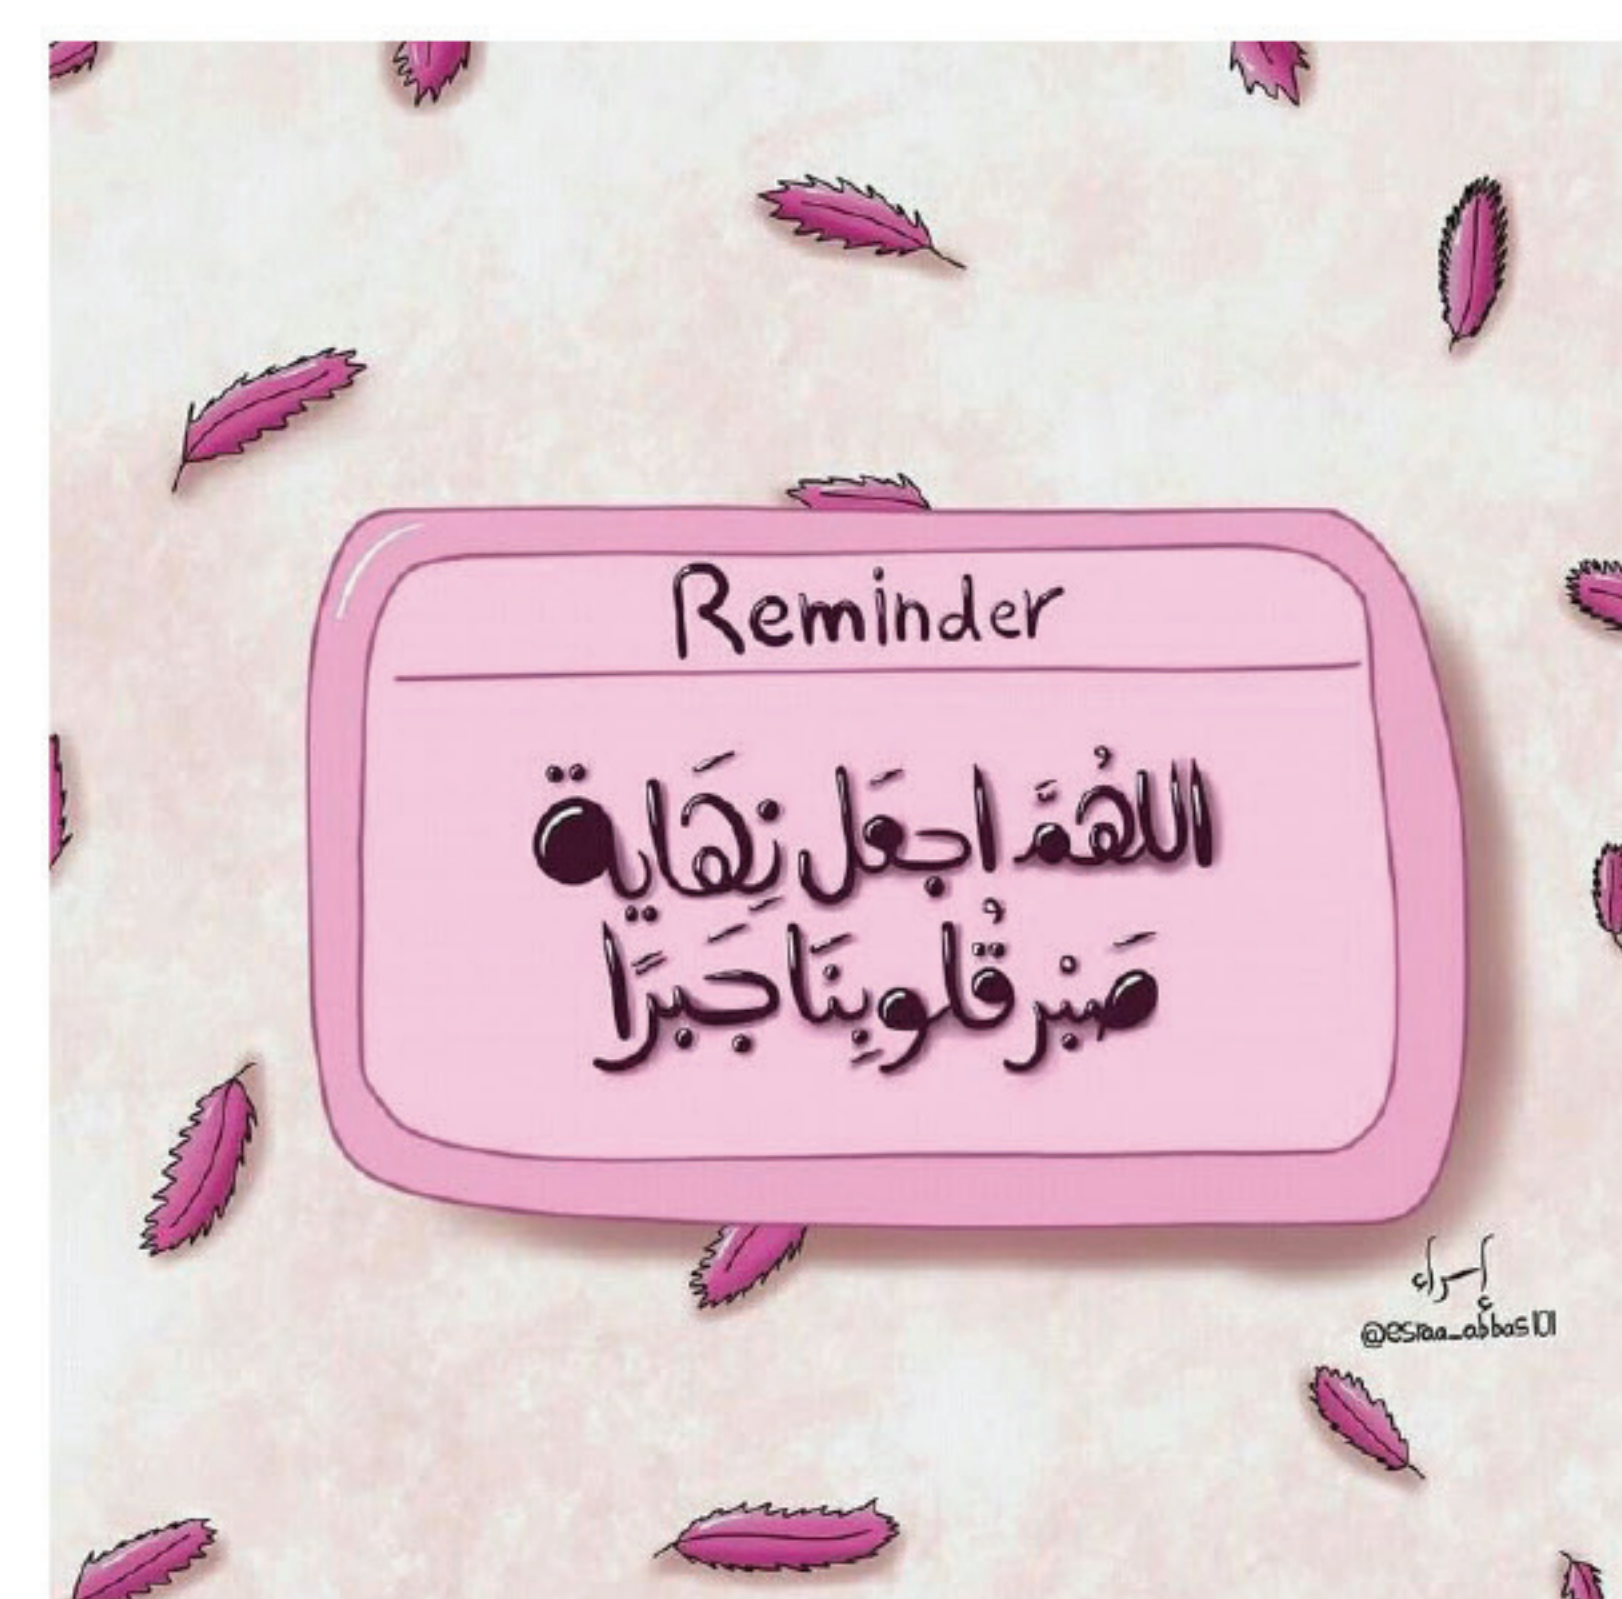 Reminder
اللهُمَّ اجعَل نِهَاية
صَبْر قُلوبِنَا جَبرًا
إسراء
@esraa_abbas101